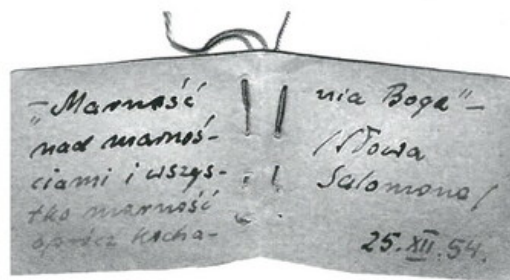 „Marność
nad marnoś-
ciami i wszys-
tko marność
oprócz kocha-
nia Boga"—
/Słowa
Salomona/
25.XII.54.